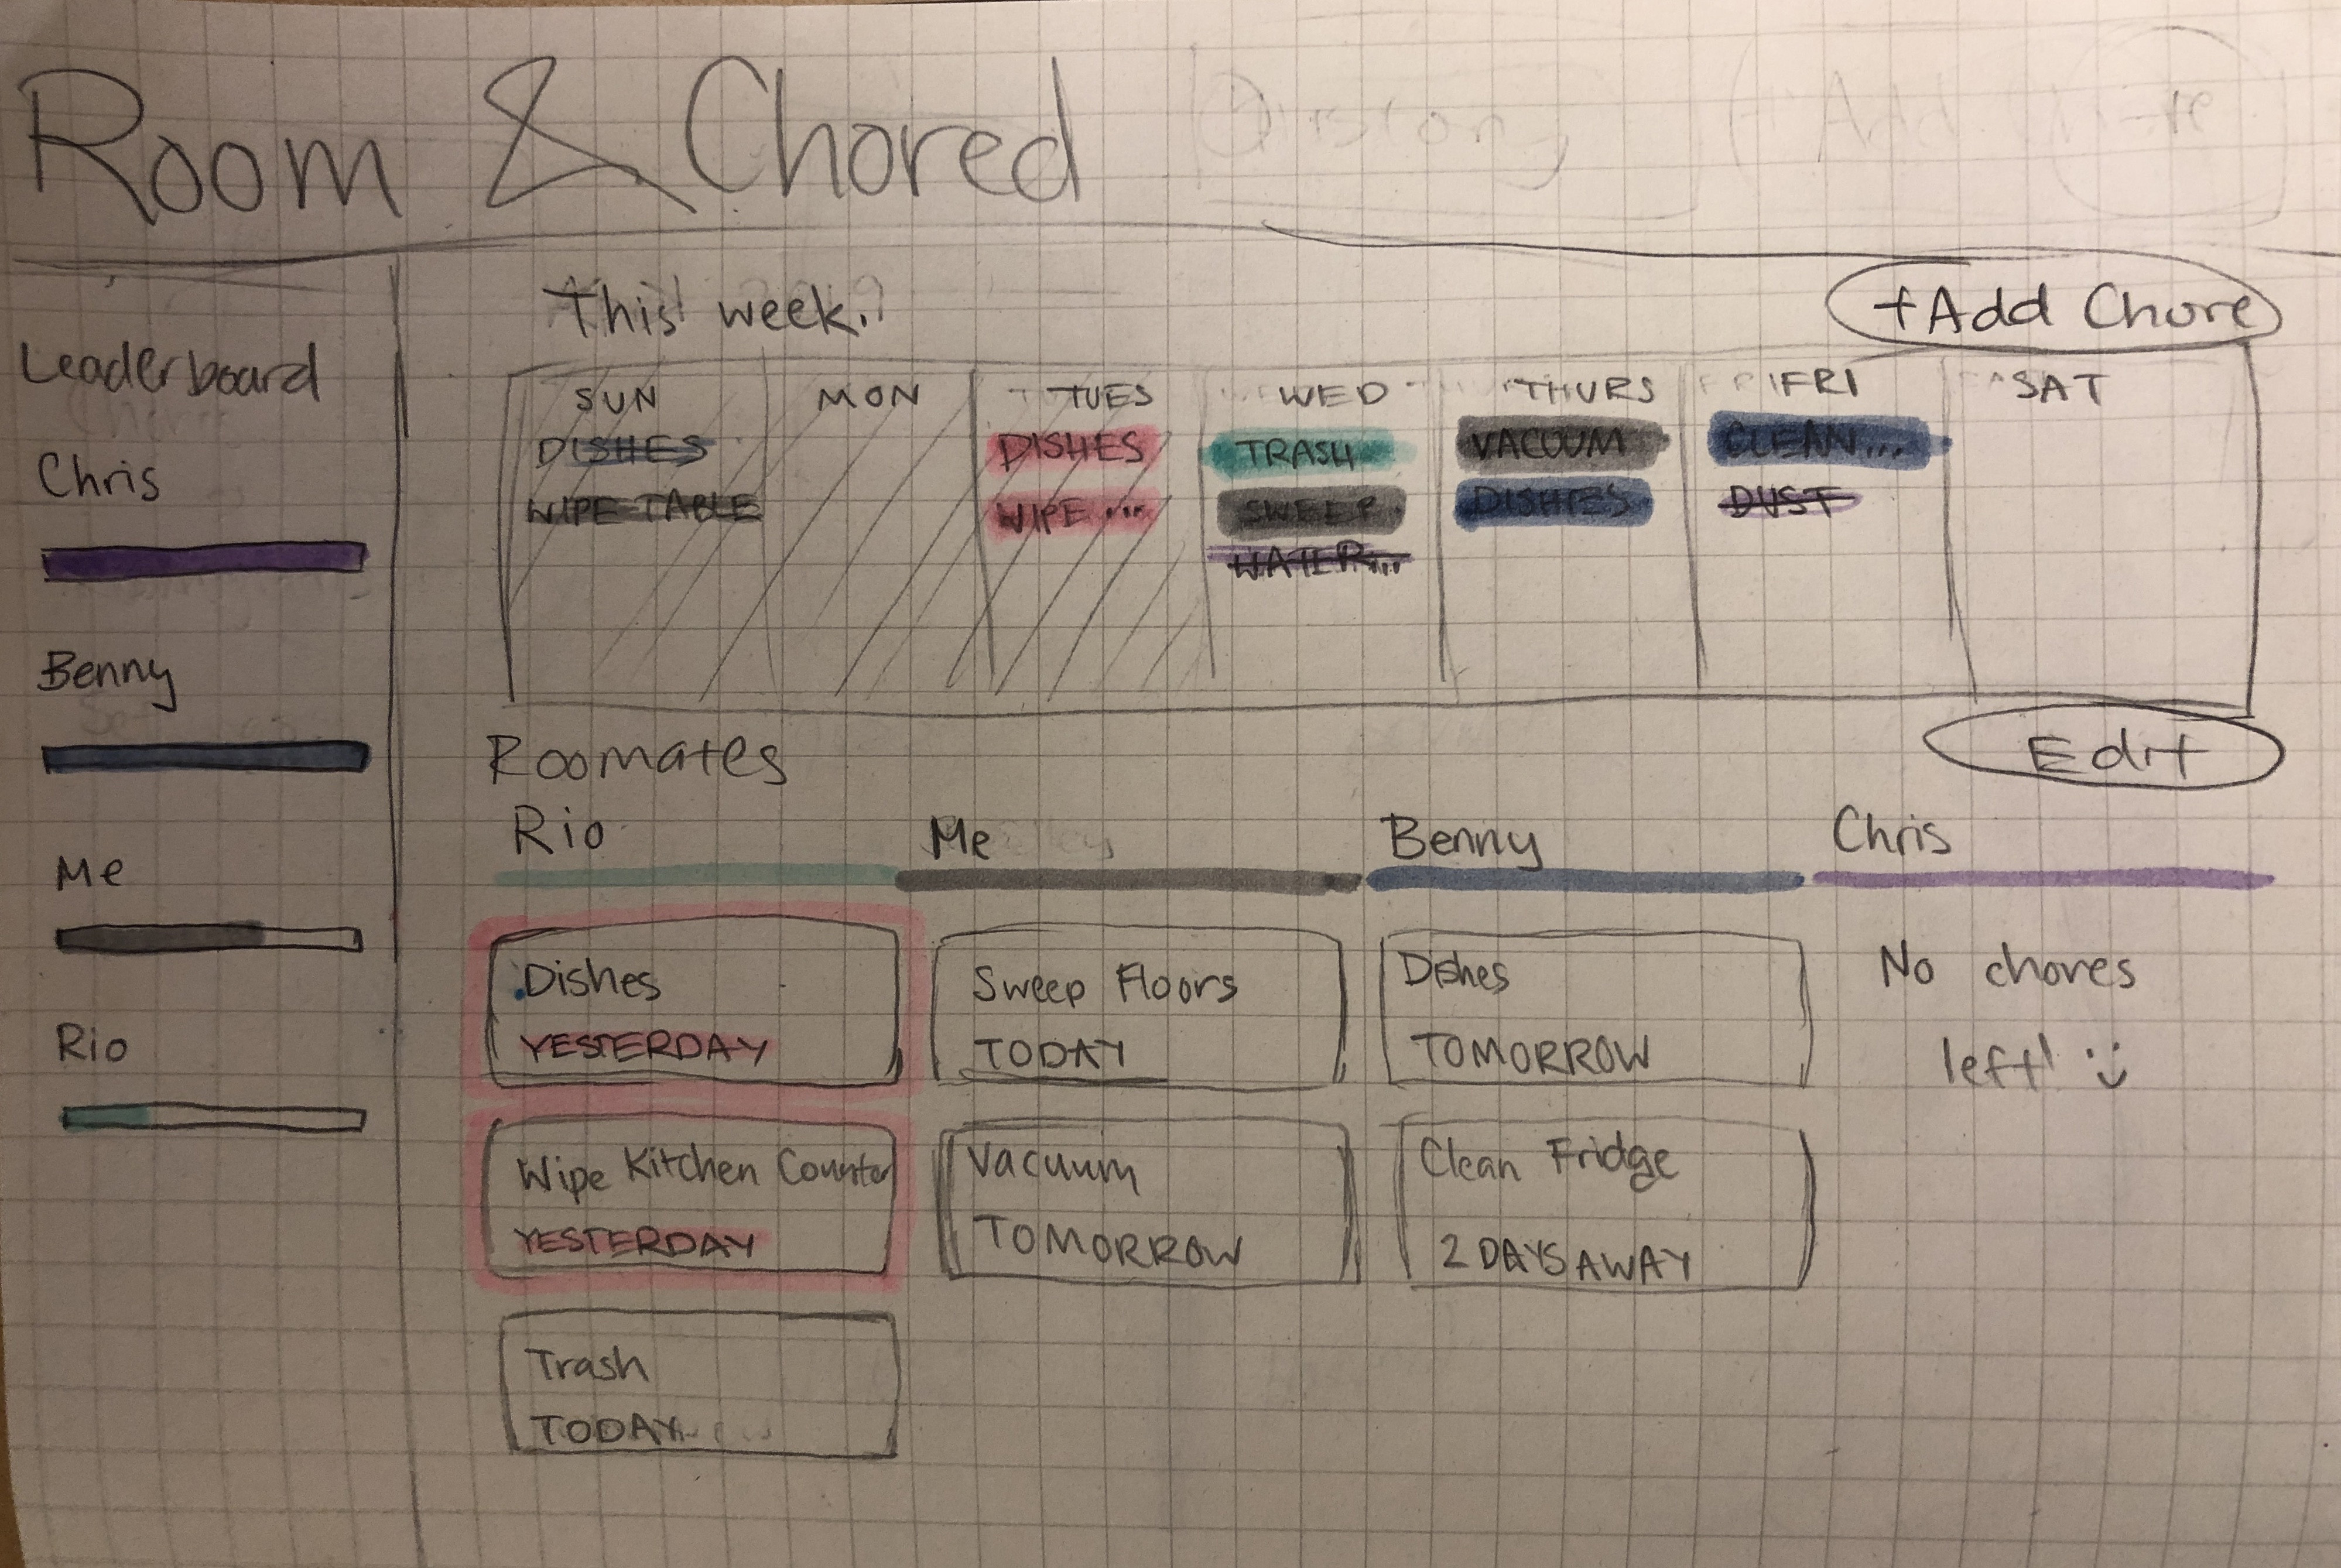 Room & Chored
This week.
+Add Chore
Leaderboard
Chris
Benny
Me
Rio
SUN MON TUES WED THURS FRI SAT
DISHES DISHES TRASH VACUUM CLEAN...
WIPE TABLE WIPE ... SWEEP DISHES DUST
WATER...
Roomates
Edit
Rio Me Benny Chris
Dishes
YESTERDAY
Wipe Kitchen Counter
YESTERDAY
Trash
TODAY
Sweep Floors
TODAY
Vacuum
TOMORROW
Dishes
TOMORROW
Clean Fridge
2 DAYS AWAY
No chores
left! :)